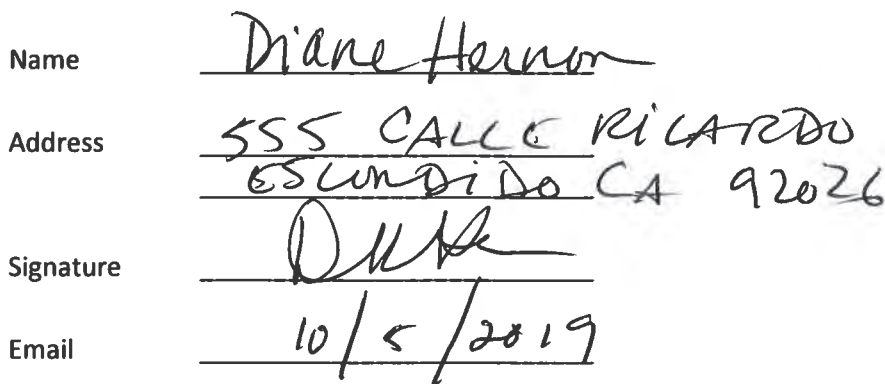 Name Diane Hernon
Address 555 CALLE RiCARDO
ESCONDiDO CA 92026
Signature
Email 10/5/2019